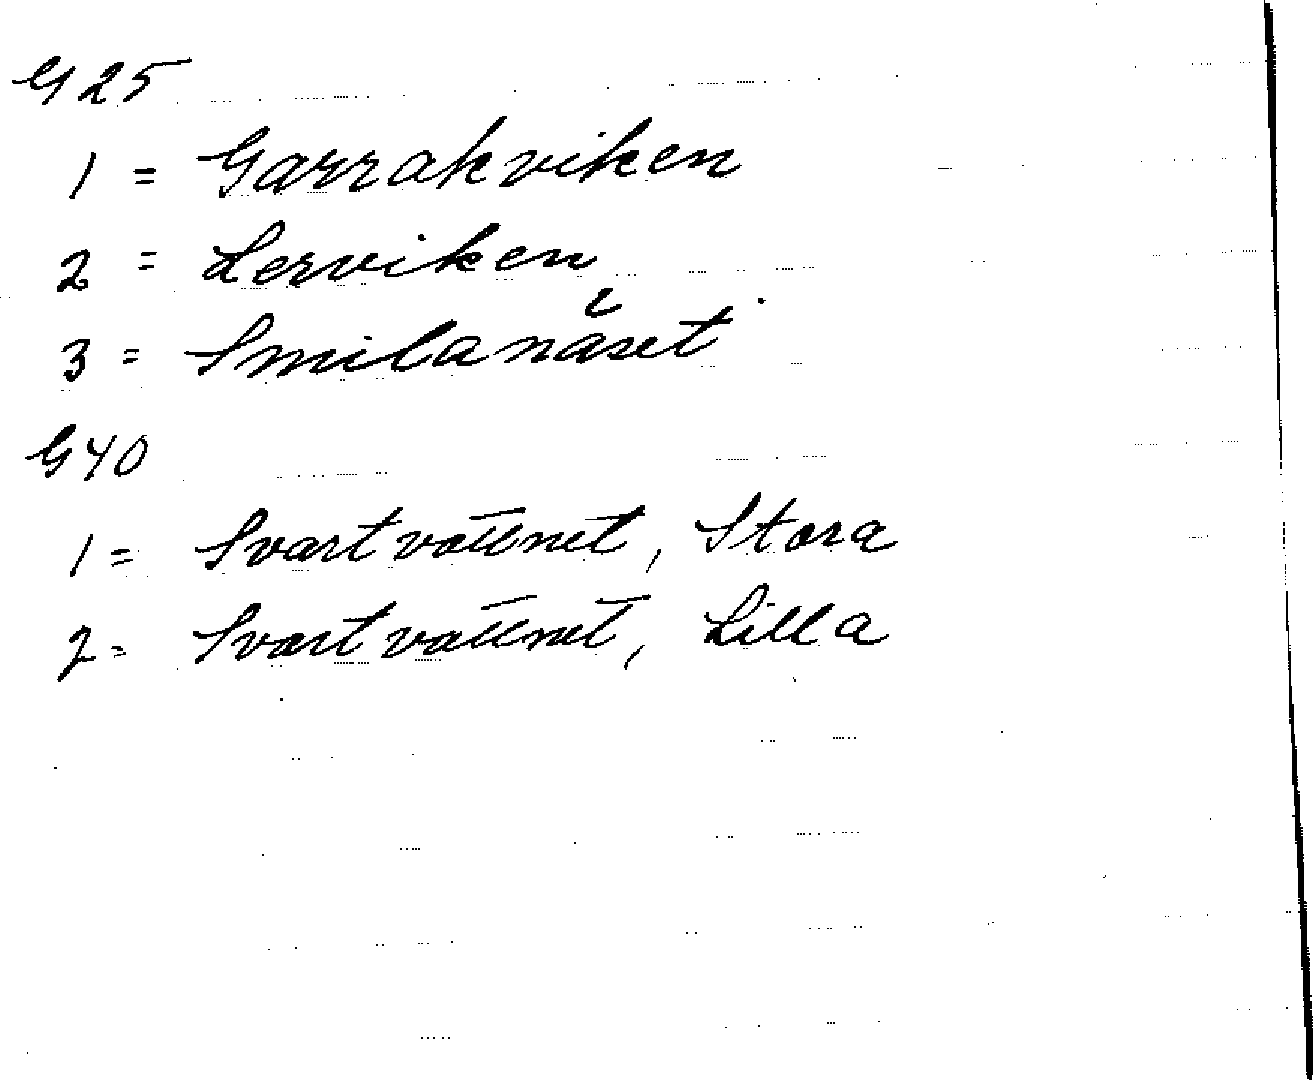 G25
1 = Garrakviken
2 = Lerviken
3 = Smilanäset
G40
1 = Svartvattnet, Stora
2 = Svartvattnet, Lilla